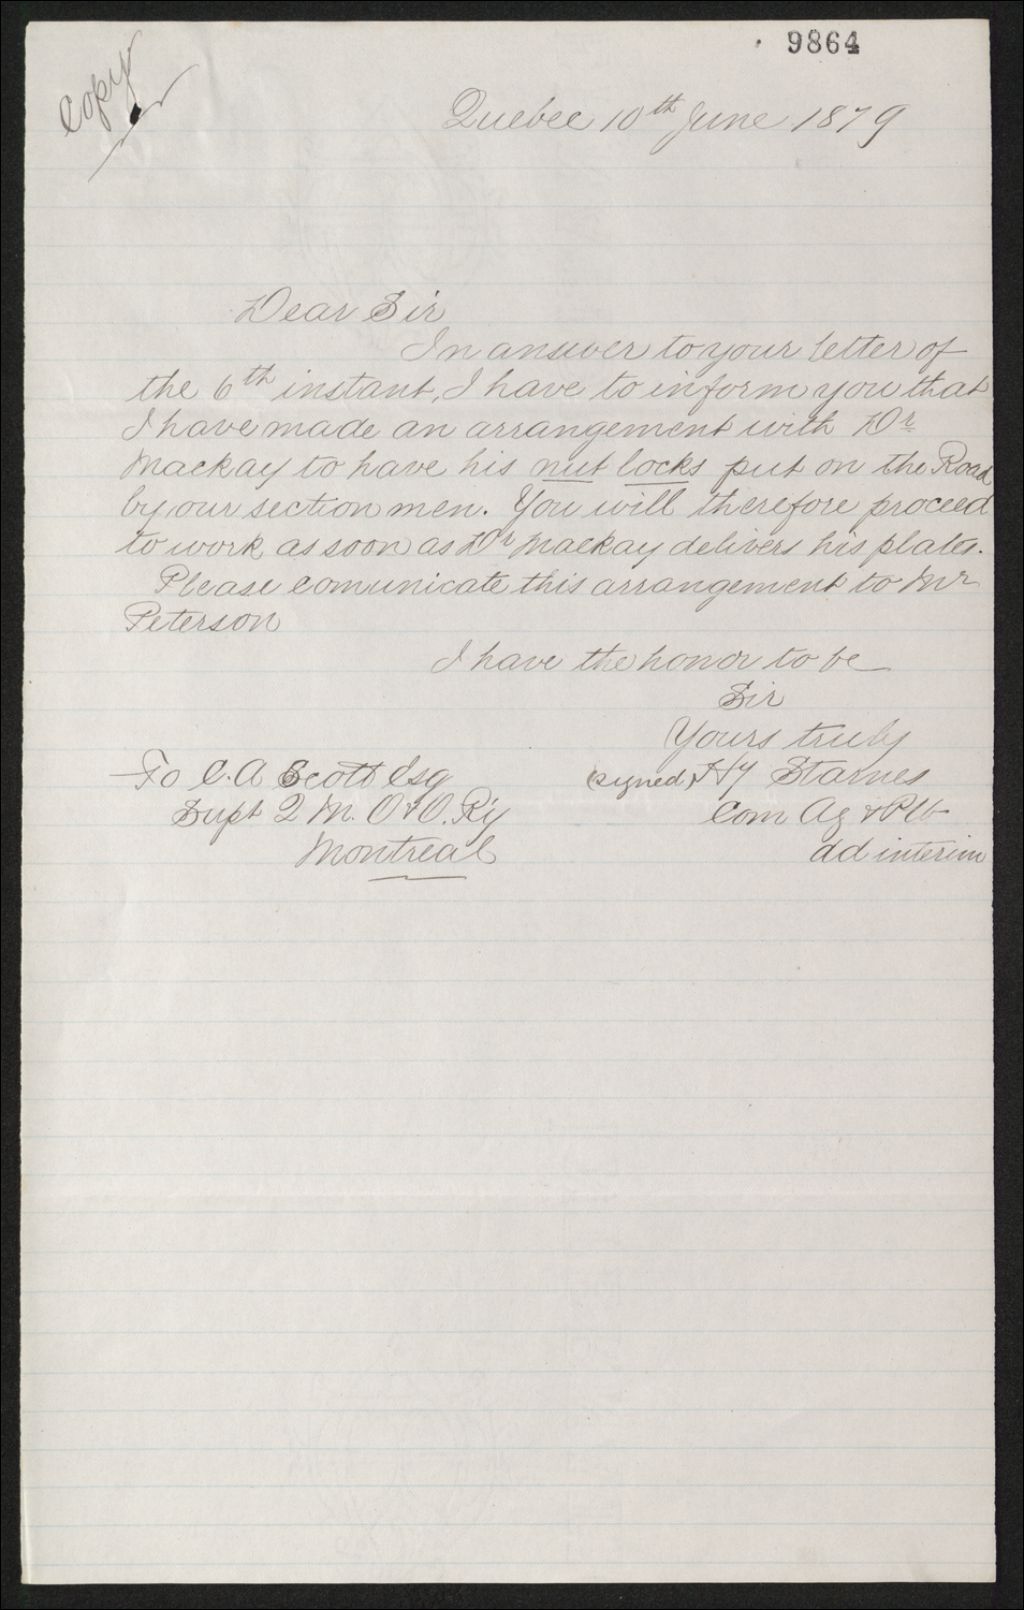 9864
Copy
Quebec 10th June 1879
Dear Sir
In answer to your letter of
the 6th instant, I have to inform you that
I have made an arrangement with Dr
Mackay to have his nut locks put on the Road
by our section men. You will therefore proceed
to work as soon as Dr Mackay delivers his plates.
Please comunicate this arrangement to Mr
Peterson
I have the honor to be
Sir
Yours truly
(signed) Hy Starnes
Com Ag & P
ad interim
To C. A Scott Esq
Supt Q M. O & O. Ry
Montreal